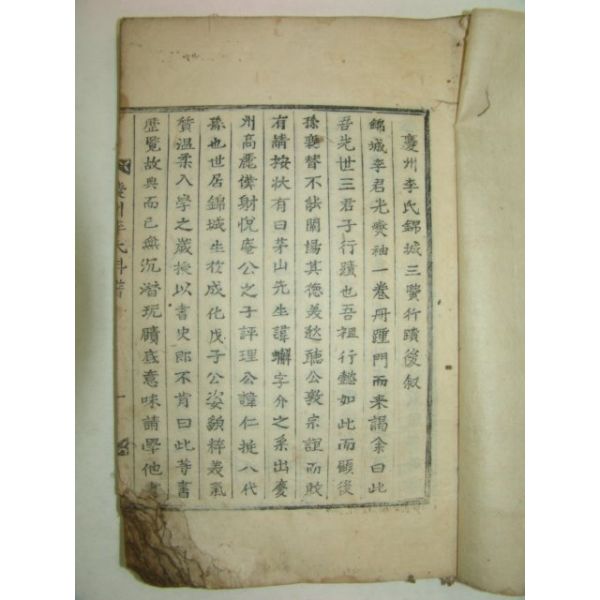 慶州李氏錦城三賢行蹟後叙
錦城李君光奭袖一卷冊踵門而來謁余曰此
吾先世三君子行蹟也吾祖行懿如此而顧後
孫襄替不能闡揚其德美愁聽公毅宗誼而敢
有請按狀有曰茅山先生諱蠏字介之系出慶
州高麗僕射悅庵公之子評理公諱仁挺八代
孫也世居錦城生於成化戊子公姿額粹美氣
質溫柔入學之歲授以書史郎不肯曰此等書
歷覽故典而已無沉潛玩賾底意味請學他書
慶州李氏科譜
一